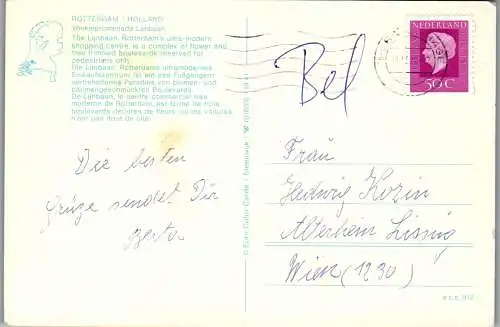 ROTTERDAM / HOLLAND
Winkelpromenade Lijnbaan
The Lijnbaan, Rotterdam's ultra-modern
shopping centre is a complex of flower and
tree trimmed boulevards reserved for
pedestrians only.
Die Lijnbaan, Rotterdams ultramodernes
Einkaufszentrum, ist ein den Fußgängern
vorbehaltenes Paradies, von blumen- und
bäumengeschmückten Boulevards.
De Lijnbaan, le centre commercial très
moderne de Rotterdam, est formé de
boulevards décorés de fleurs
Die besten
Grüze sendet Dir
Berta
© Euro Color Cards
Bel
NEDERLAND
50 C
Frau
Hedwig Kozin
Altersheim
Wien (1230)
e.c.c. 912